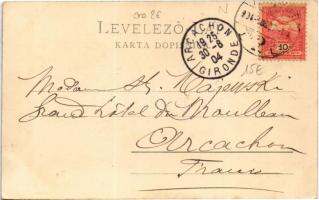 ora 86
LEVELEZŐ
KARTA DOPIS
ARCACHON
19 25
30 -8
04
GIRONDE
10
15E
Madame St. Majewski
Grand Hôtel du Moulleau
Arcachon
France